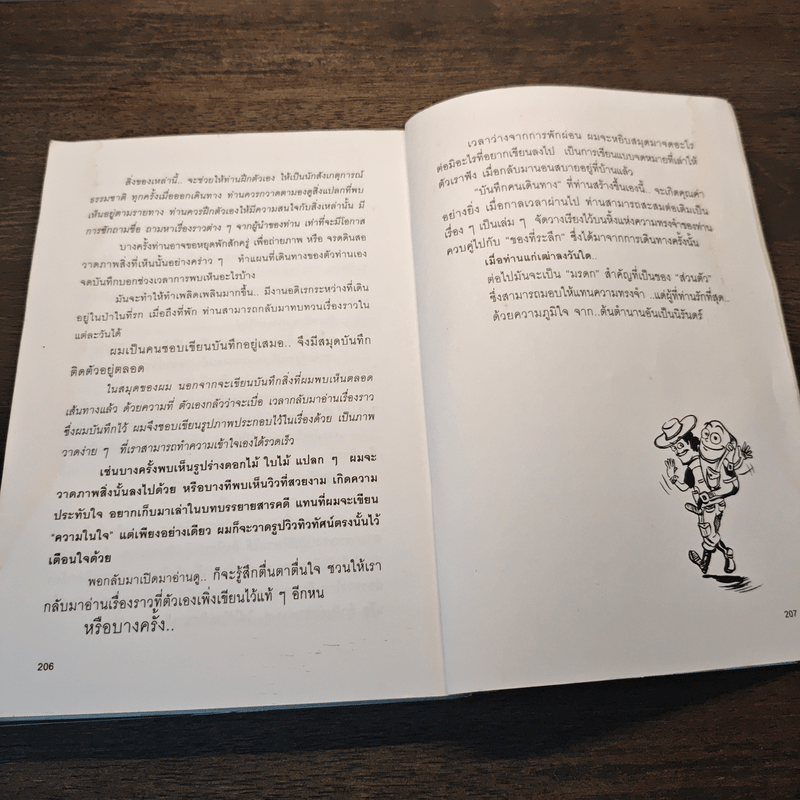 สิ่งของเหล่านี้.. จะช่วยให้ท่านฝึกตัวเอง ให้เป็นนักสังเกตุการณ์
ธรรมชาติ ทุกครั้งเมื่อออกเดินทาง ท่านควรกวาดตามองดูสิ่งแปลกที่พบ
เห็นอยู่ตามรายทาง ท่านควรฝึกตัวเองให้มีความสนใจกับสิ่งเหล่านั้น มี
การซักถามชื่อ ถามหาเรื่องราวต่าง ๆ จากผู้นำของท่าน เท่าที่จะมีโอกาส
บางครั้งท่านอาจขอหยุดพักสักครู่ เพื่อถ่ายภาพ หรือ จรดดินสอ
วาดภาพสิ่งที่เห็นนั้นอย่างคร่าว ๆ ทำแผนที่เดินทางของตัวท่านเอง
จดบันทึกบอกช่วงเวลาการพบเห็นอะไรบ้าง
มันจะทำให้ท่านเพลิดเพลินมากขึ้น.. มีงานอดิเรกระหว่างที่เดิน
อยู่ในป่าในที่รก เมื่อถึงที่พัก ท่านสามารถกลับมาทบทวนเรื่องราวใน
แต่ละวันได้
ผมเป็นคนชอบเขียนบันทึกอยู่เสมอ.. จึงมีสมุดบันทึก
ติดตัวอยู่ตลอด
ในสมุดของผม นอกจากจะเขียนบันทึกสิ่งที่ผมพบเห็นตลอด
เส้นทางแล้ว ด้วยความที่ ตัวเองกลัวว่าจะเบื่อ เวลากลับมาอ่านเรื่องราว
ซึ่งผมบันทึกไว้ ผมจึงชอบเขียนรูปภาพประกอบไว้ในเรื่องด้วย เป็นภาพ
วาดง่าย ๆ ที่เราสามารถทำความเข้าใจเองได้รวดเร็ว
เช่นบางครั้งพบเห็นรูปร่างดอกไม้ ใบไม้ แปลก ๆ ผมจะ
วาดภาพสิ่งนั้นลงไปด้วย หรือบางทีพบเห็นวิวที่สวยงาม เกิดความ
ประทับใจ อยากเก็บมาเล่าในบทบรรยายสารคดี แทนที่ผมจะเขียน
"ความในใจ" แต่เพียงอย่างเดียว ผมก็จะวาดรูปวิวทิวทัศน์ตรงนั้นไว้
เตือนใจด้วย
พอกลับมาเปิดมาอ่านดู.. ก็จะรู้สึกตื่นตาตื่นใจ ชวนให้เรา
กลับมาอ่านเรื่องราวที่ตัวเองเพิ่งเขียนไว้แท้ ๆ อีกหน
หรือบางครั้ง..
206
เวลาว่างจากการพักผ่อน ผมจะหยิบสมุดมาจดอะไร
ต่อมิอะไรที่อยากเขียนลงไป เป็นการเขียนแบบจดหมายที่เล่าให้
ตัวเราฟัง เมื่อกลับมานอนสบายอยู่ที่บ้านแล้ว
"บันทึกคนเดินทาง" ที่ท่านสร้างขึ้นเองนี้.. จะเกิดคุณค่า
อย่างยิ่ง เมื่อกาลเวลาผ่านไป ท่านสามารถสะสมต่อเติมเป็น
เรื่อง ๆ เป็นเล่ม ๆ จัดวางเรียงไว้บนหิ้งแห่งความทรงจำของท่าน
ควบคู่ไปกับ "ของที่ระลึก" ซึ่งได้มาจากการเดินทางครั้งนั้น
เมื่อท่านแก่เฒ่าลงวันใด..
ต่อไปมันจะเป็น "มรดก" สำคัญที่เป็นของ "ส่วนตัว"
ซึ่งสามารถมอบให้แทนความทรงจำ ..แด่ผู้ที่ท่านรักที่สุด..
ด้วยความภูมิใจ จาก..ต้นตำนานอันเป็นนิรันดร์
207